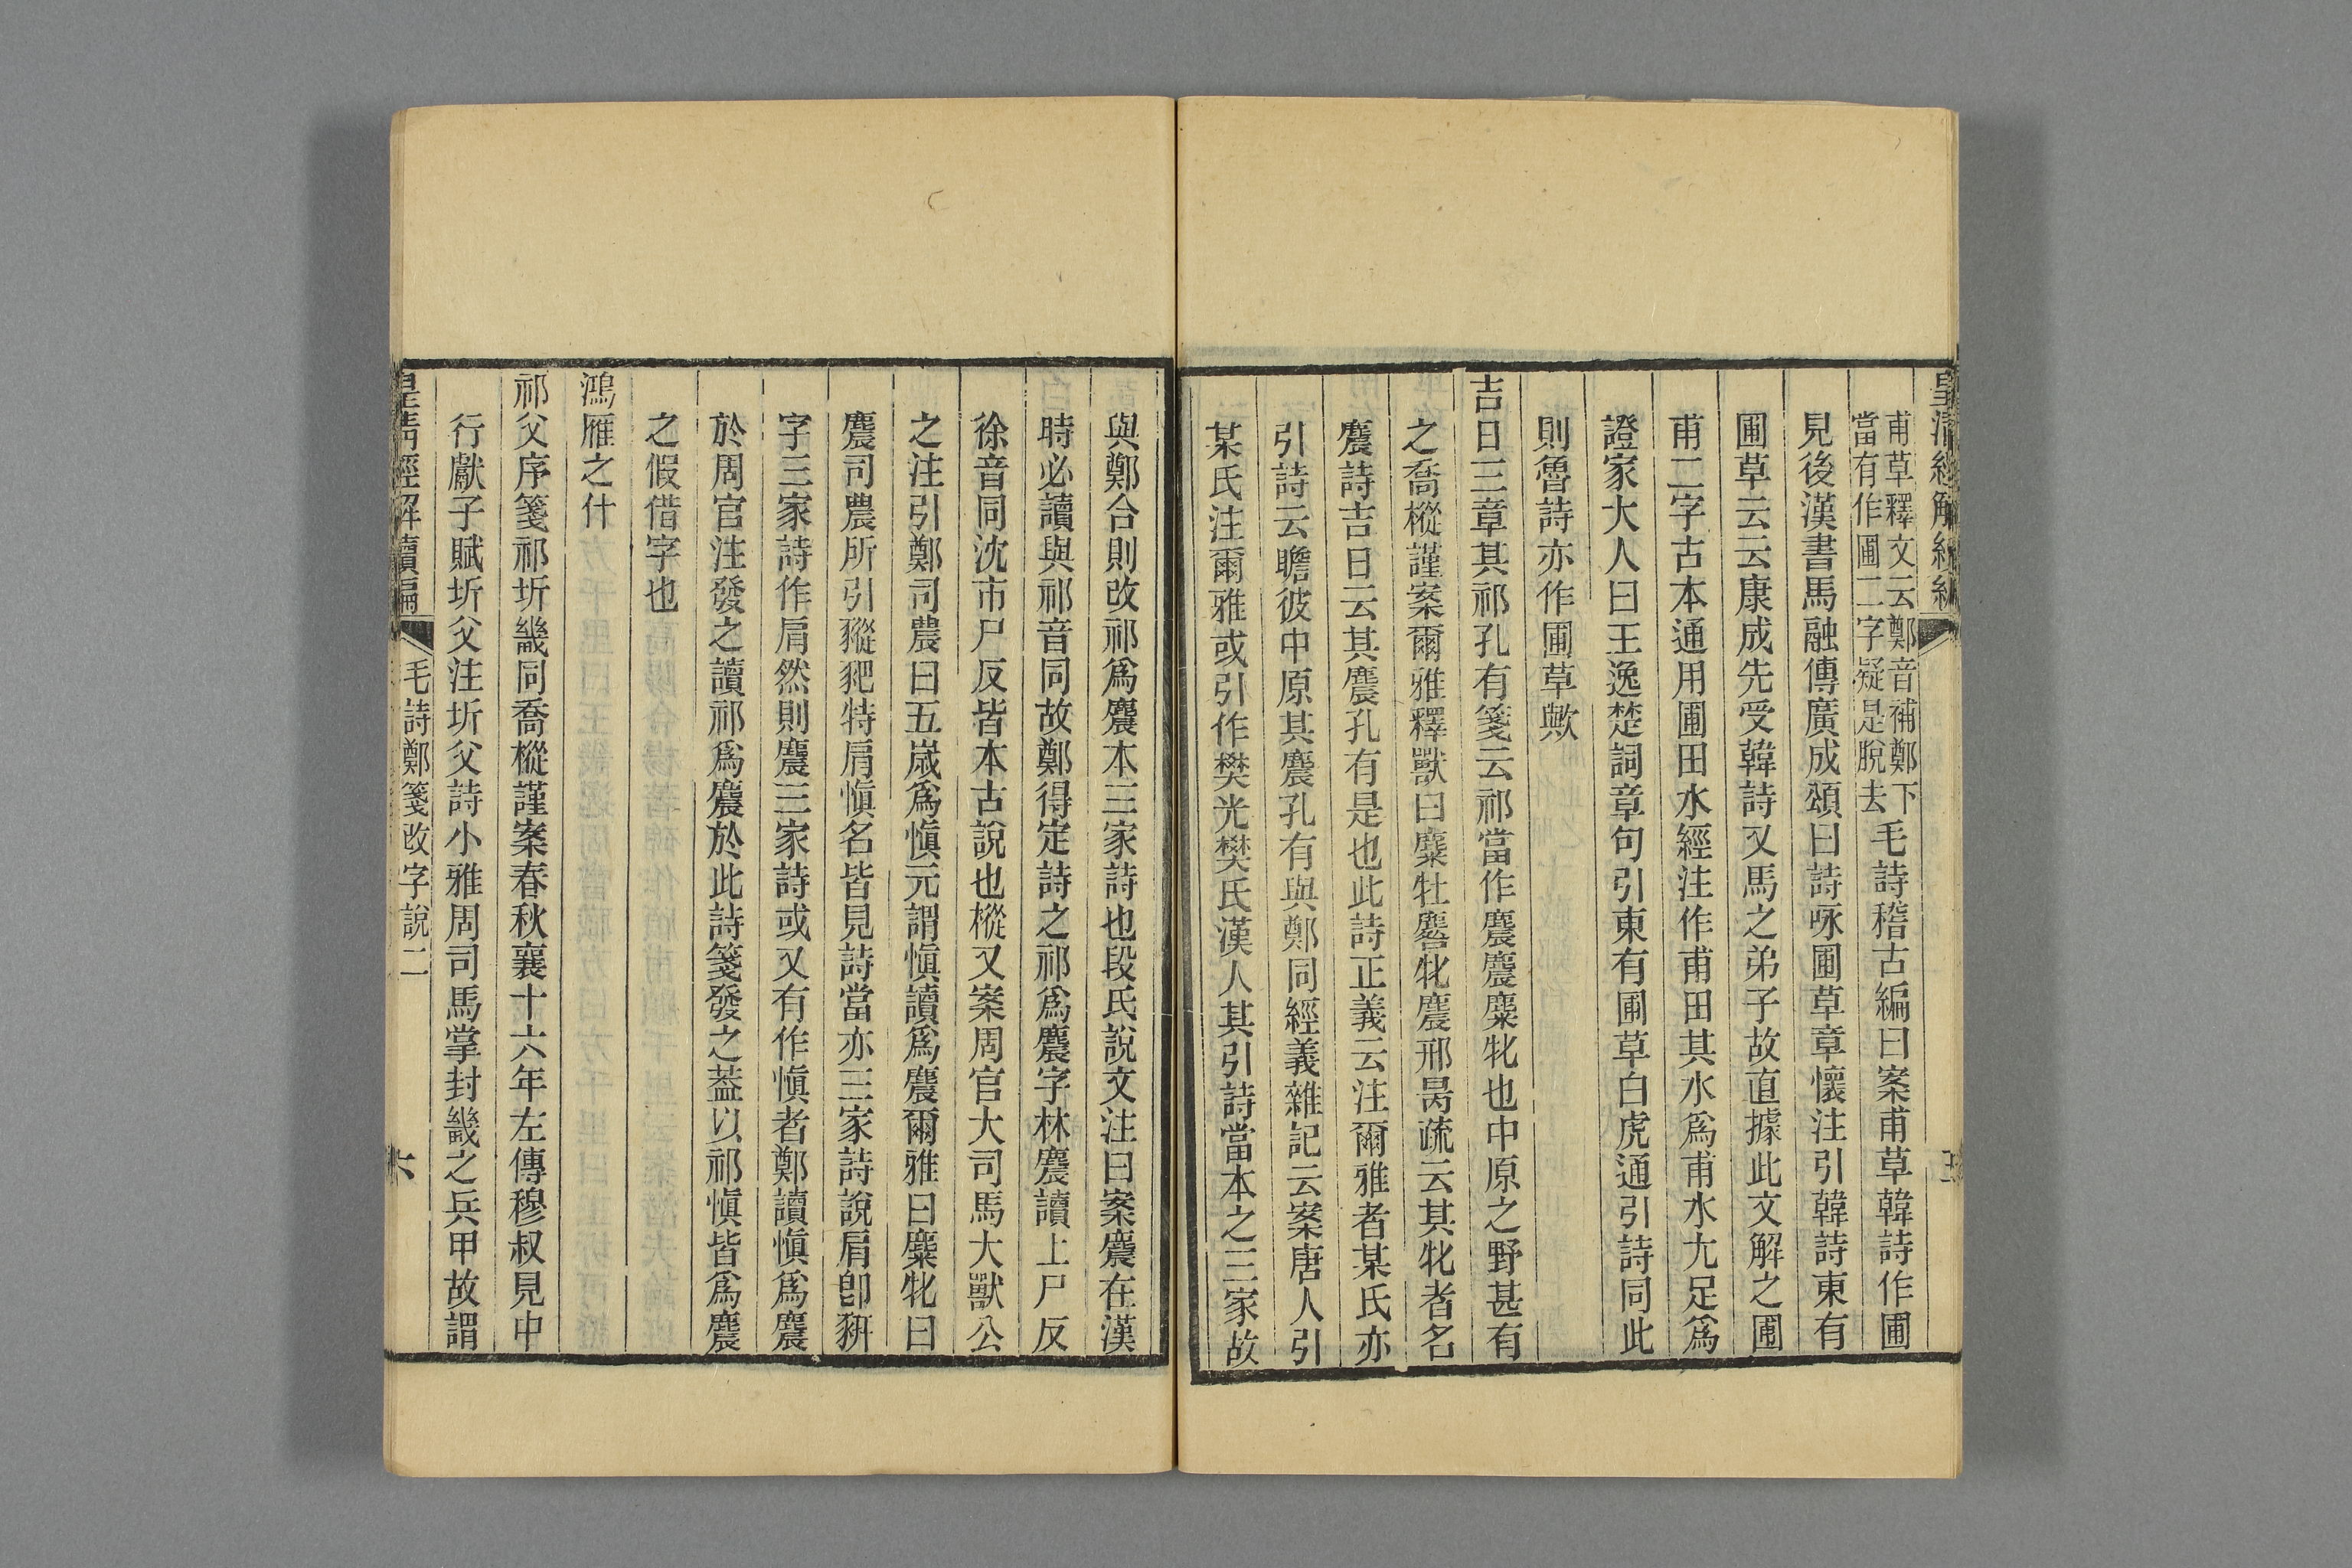 皇清經解續編
五
甫草釋文云鄭音補鄭下
當有作圃二字疑是脫去
毛詩稽古編曰案甫草韓詩作圃
見後漢書馬融傳廣成頌曰詩咏圃草章懷注引韓詩東有
圃草云云康成先受韓詩又馬之弟子故直據此文解之圃
甫二字古本通用圃田水經注作甫田其水爲甫水尢足爲
證家大人曰王逸楚詞章句引東有圃草白虎通引詩同此
則魯詩亦作圃草歟
吉日三章其祁孔有箋云祁當作麎麎麋牝也中原之野甚有
之喬樅謹案爾雅釋獸曰麋牡麔牝麎邢昺疏云其牝者名
麎詩吉日云其麎孔有是也此詩正義云注爾雅者某氏亦
引詩云瞻彼中原其麎孔有與鄭同經義雜記云案唐人引
某氏注爾雅或引作樊光樊氏漢人其引詩當本之三家故
與鄭合則改祁爲麎本三家詩也段氏說文注曰案麎在漢
時必讀與祁音同故鄭得定詩之祁爲麎字林麎讀上尸反
徐音同沈市尸反皆本古說也樅又案周官大司馬大獸公
之注引鄭司農曰五嵗爲愼元謂愼讀爲麎爾雅曰麋牝曰
麎司農所引豵豝特肩愼名皆見詩當亦三家詩說肩卽豣
字三家詩作肩然則麎三家詩或又有作愼者鄭讀愼爲麎
於周官注發之讀祁爲麎於此詩箋發之葢以祁愼皆爲麎
之假借字也
鴻雁之什
祁父序箋祁圻畿同喬樅謹案春秋襄十六年左傳穆叔見中
行獻子賦圻父注圻父詩小雅周司馬掌封畿之兵甲故謂
皇清經解續編
毛詩鄭箋改字說二
六